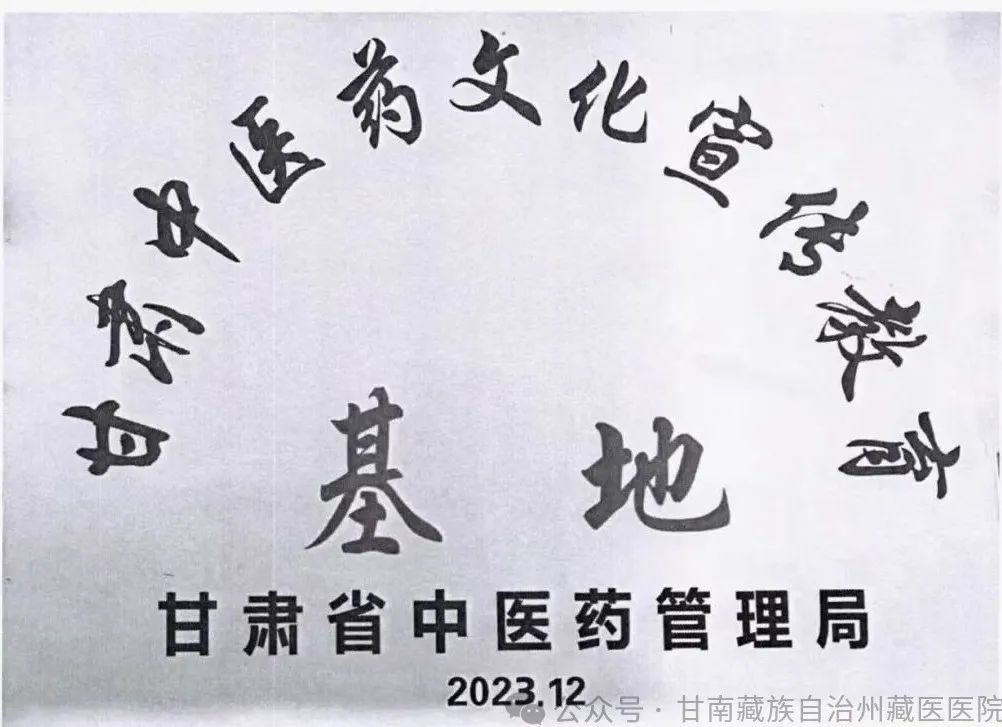 甘肃中医药文化宣传教育
基地
甘肃省中医药管理局
2023.12
公众号·甘南藏族自治州藏医医院